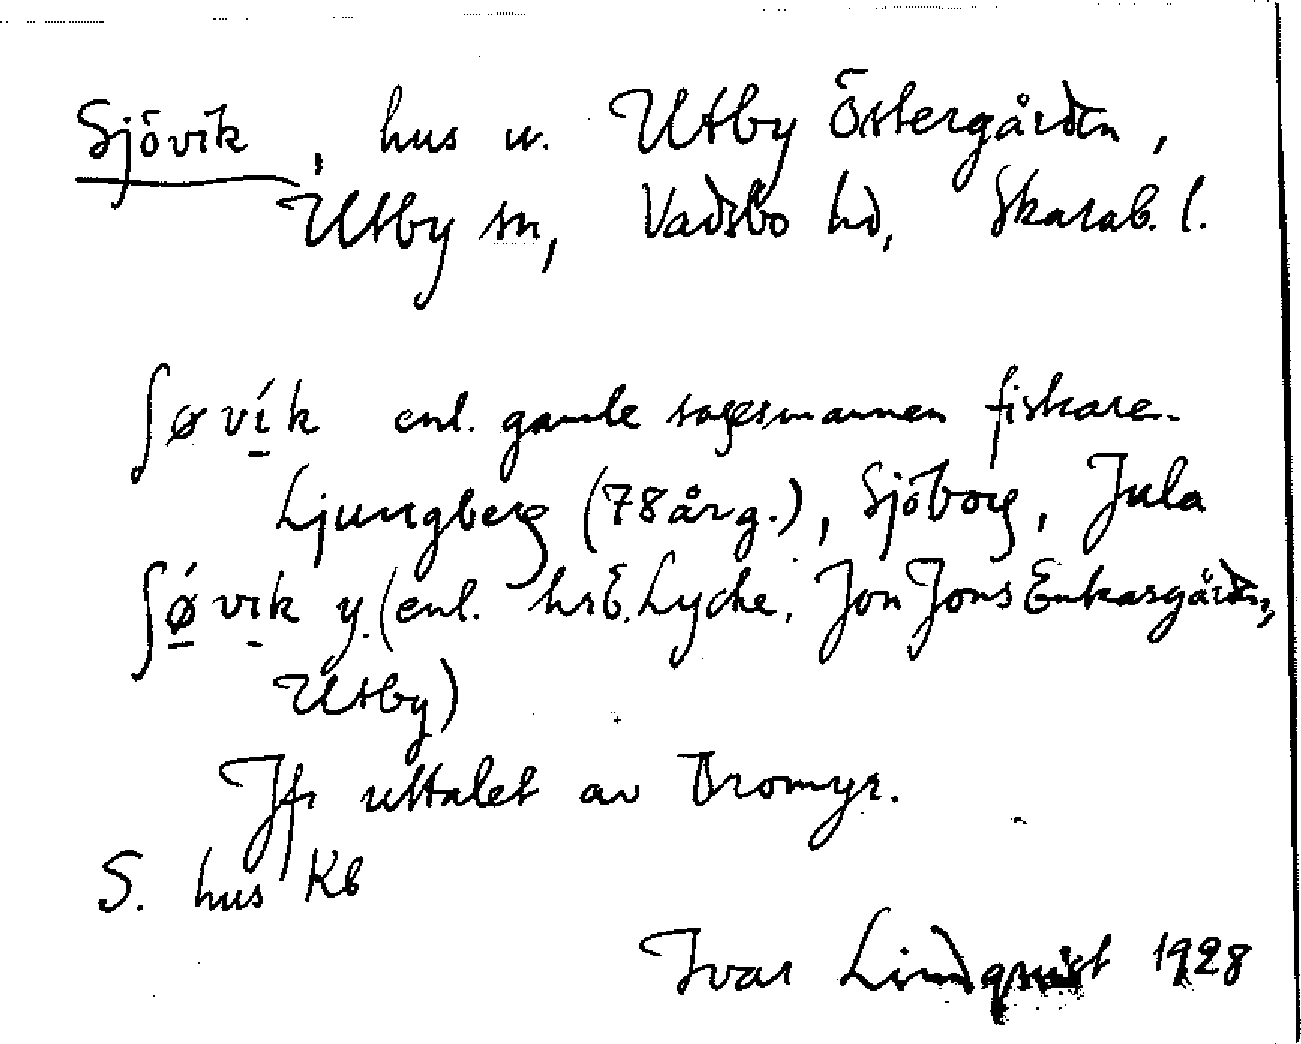 Sjövik, hus u. Utby Östergården,
Utby sn, Vadsbo hd, Skarab. l.
ʃø vík enl. gamle sagesmannen fiskare
Ljungberg (78 årg.), Sjöborg, Jula
ʃǿ vik y. (enl. hrE. Lycke, Jon Jons Enkasgården,
Utby)
Jfr uttalet av Bromyr.
S. hus Kb
Ivar Lindquist 1928